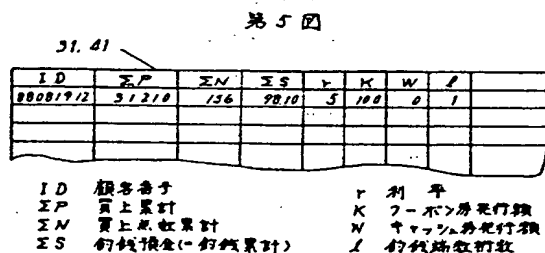 第5図
31, 41
ID ΣP ΣN ΣS r K W ℓ
88081912 31210 156 9810 5 100 0 1
ID 顧客番号
ΣP 買上累計
ΣN 買上点数累計
ΣS 釣銭預金(=釣銭累計)
r 利率
K クーポン券発行額
W キャッシュ券発行額
ℓ 釣銭端数桁数